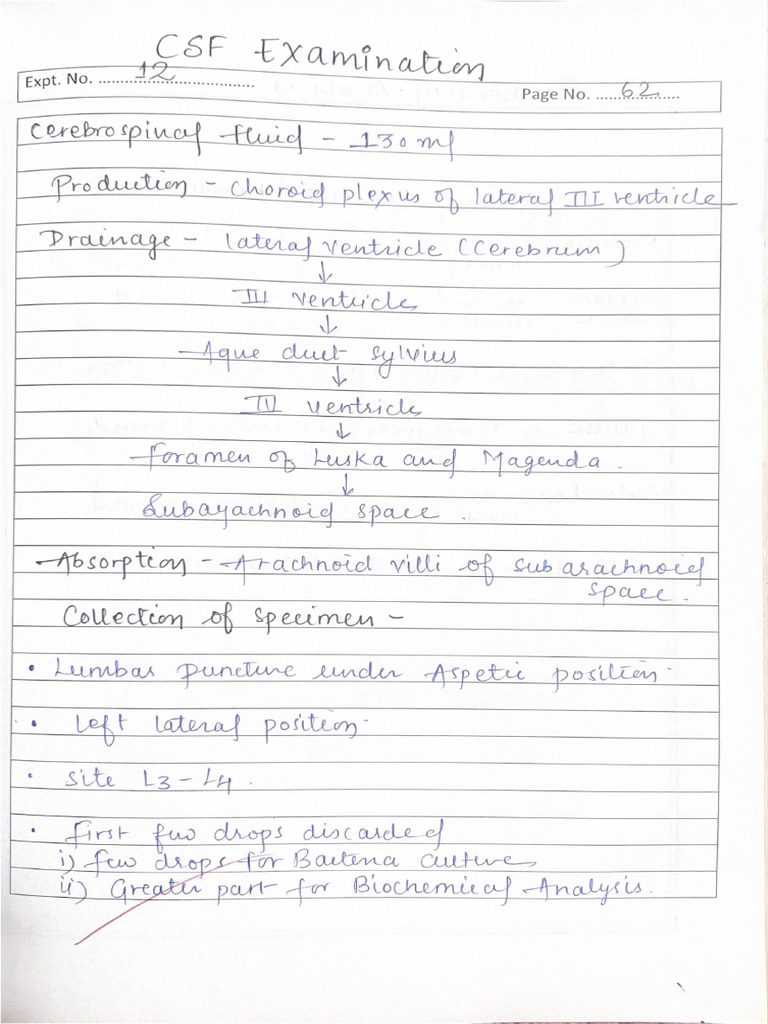 CSF Examination
Expt. No. 12
Page No. 62
Cerebrospinal fluid - 130ml
Production - Choroid plexus of lateral III ventricle
Drainage - lateral ventricle (Cerebrum)
↓
III ventricle
↓
Aque duct sylvius
↓
IV ventricle
↓
foramen of Luska and Magenda.
↓
Subarachnoid space.
Absorption - Arachnoid villi of subarachnoid
space.
Collection of specimen -
• Lumbar puncture under Aspetic position.
• left lateral position.
• site L3-L4.
• first few drops discarded
i) few drops for Bacteria culture
ii) Greater part for Biochemical Analysis.